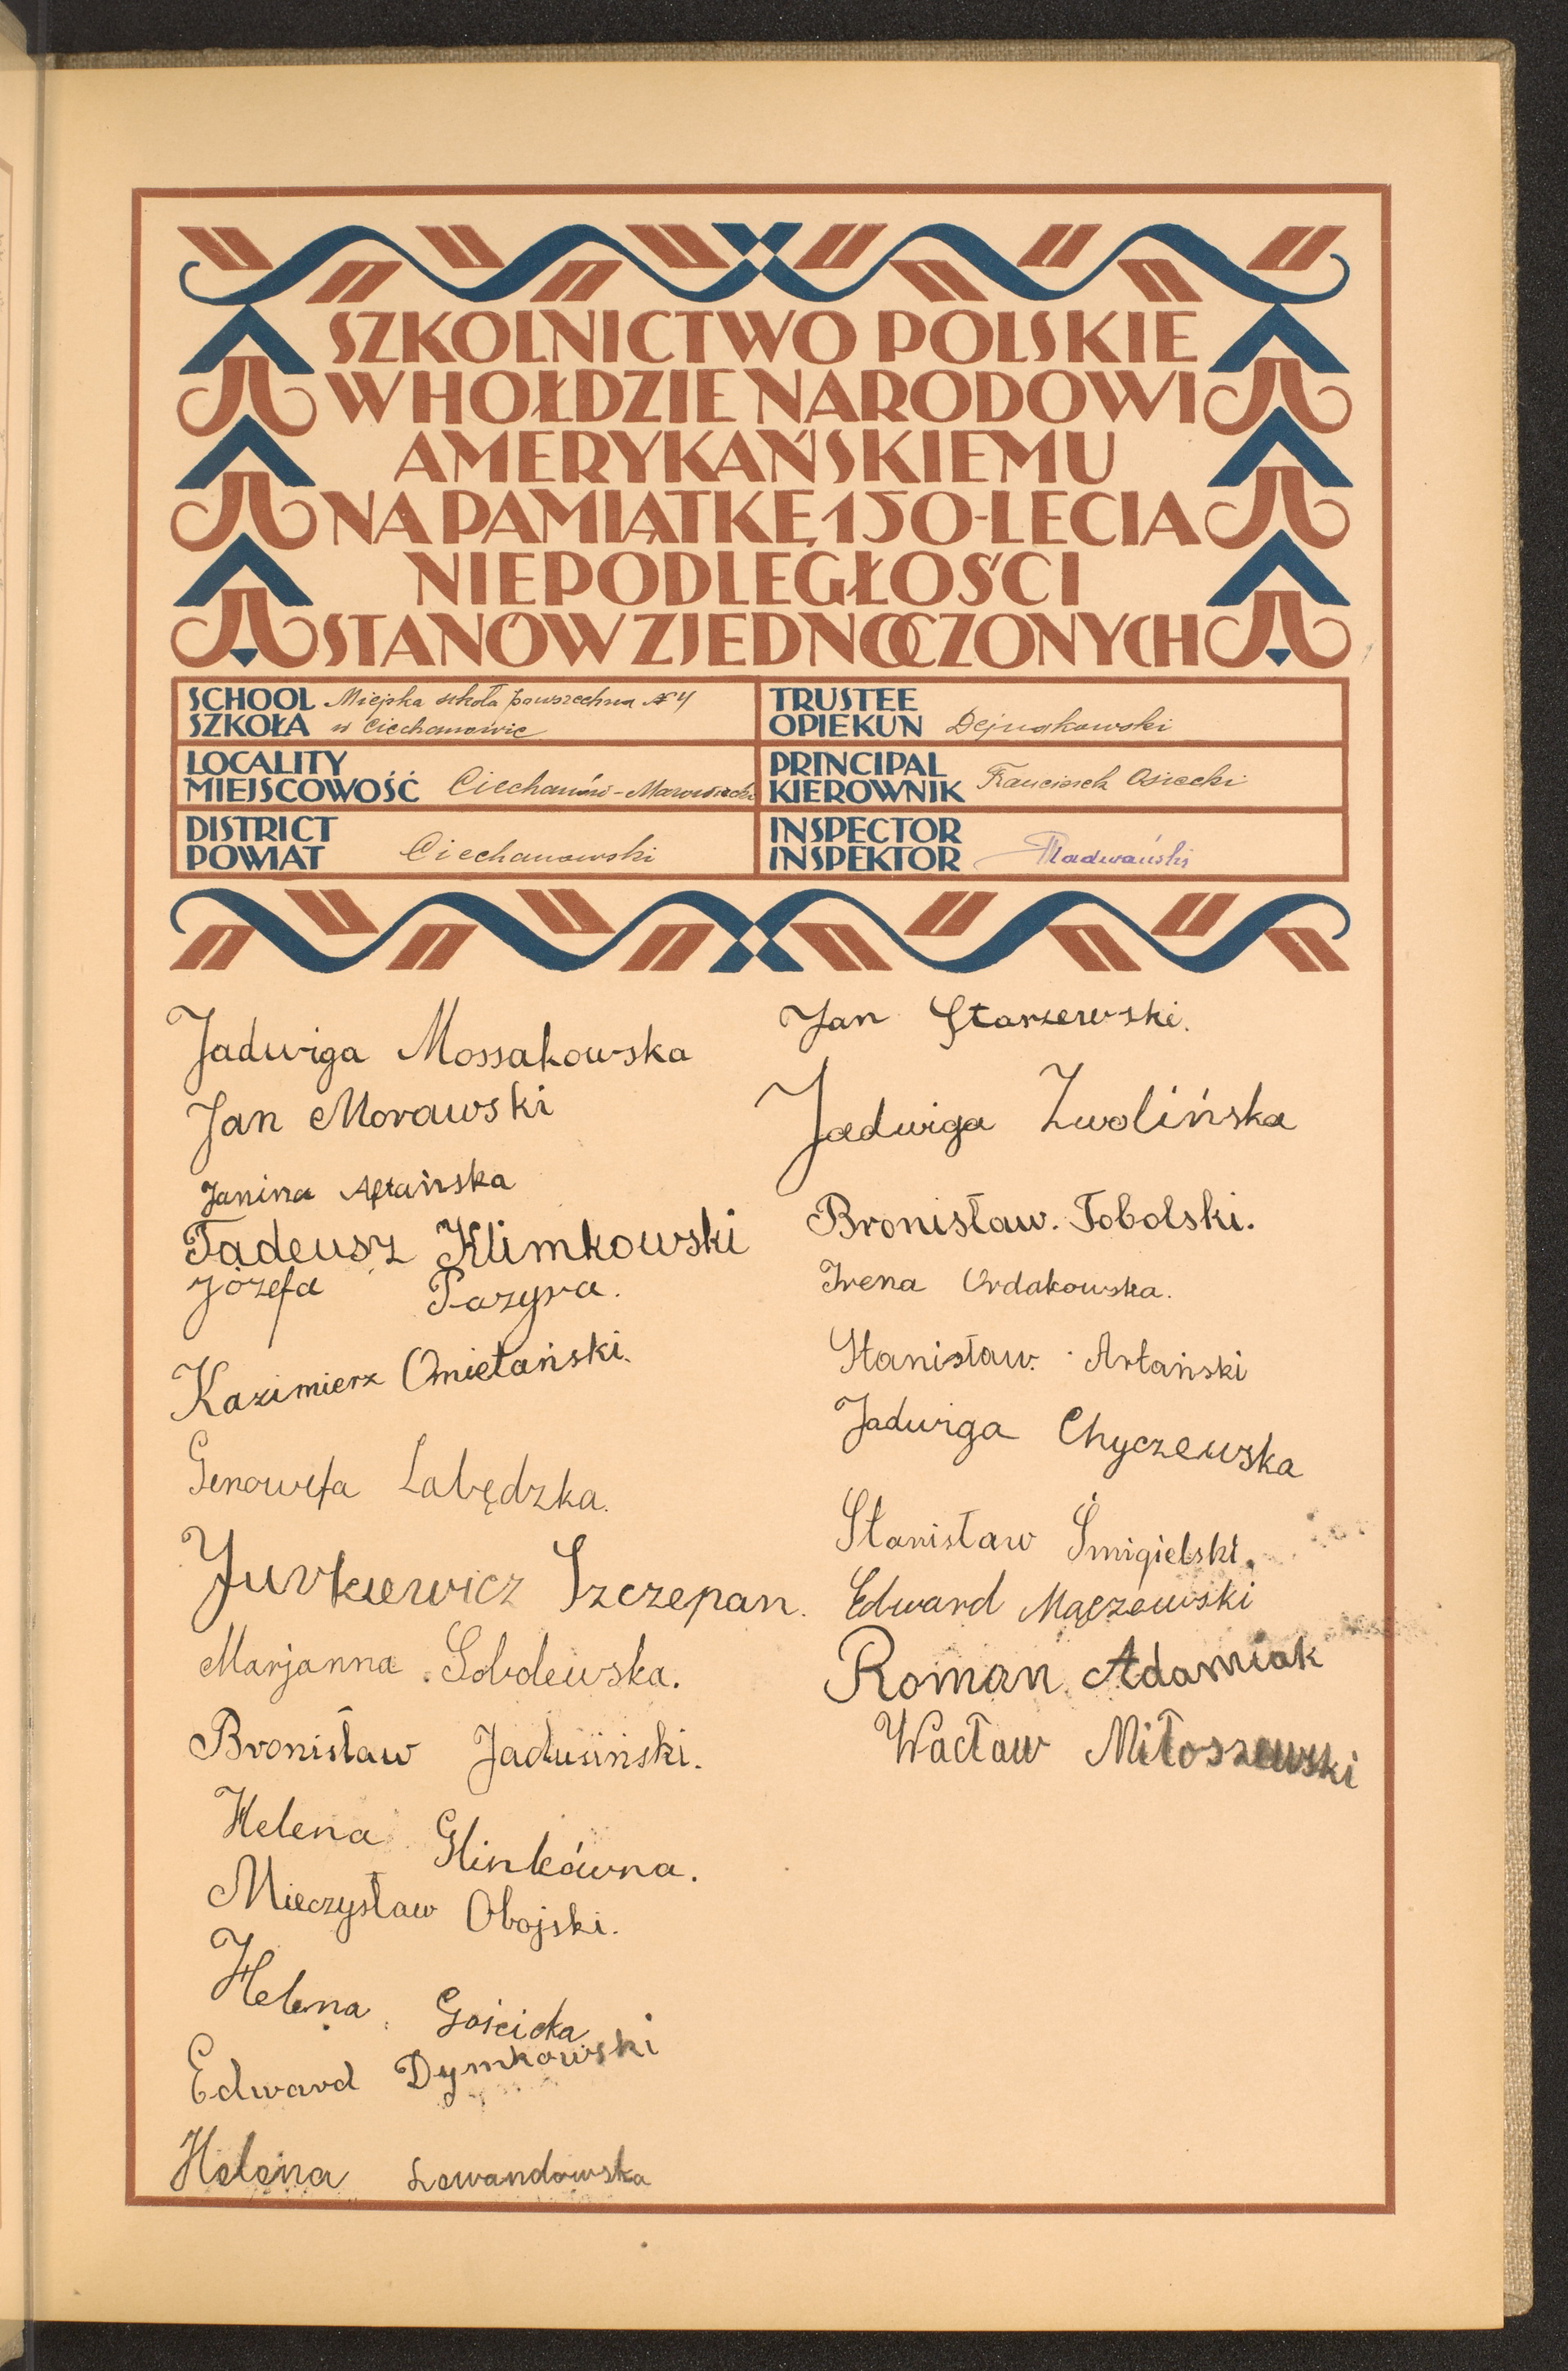 SZKOLNICTWO POLSKIE
W HOŁDZIE NARODOWI
AMERYKAŃSKIEMU
NA PAMIĄTKĘ 150-LECIA
NIEPODLEGŁOŚCI
STANÓW ZJEDNOCZONYCH
SCHOOL Miejska szkoła powszechna № 4
SZKOŁA w Ciechanowie
LOCALITY
MIEJSCOWOŚĆ Ciechanów-Mazowiecki
DISTRICT
POWIAT Ciechanowski
TRUSTEE
OPIEKUN
PRINCIPAL
KIEROWNIK Franciszek Osiecki
INSPECTOR
INSPEKTOR Radwański
Jadwiga Mossakowska
Jan Morawski
Janina
Tadeusz Klimkowski
Józefa Pazyra.
Kazimierz Omietański.
Genowefa Łabędzka.
Jurkiewicz Szczepan.
Marjanna Sobolewska.
Bronisław Jadusiński.
Helena Glinkówna.
Mieczysław Obojski.
Helena Gościcka
Edward Dymkowski
Helena Lewandowska
Jan Starzewski.
Jadwiga Zwolińska
Bronisław. Tobolski.
Irena Ordakowska.
Stanisław. Artański
Jadwiga Chyczewska
Stanisław Śmigielski.
Edward Mączewski
Roman Adamiak
Wacław Miłoszewski